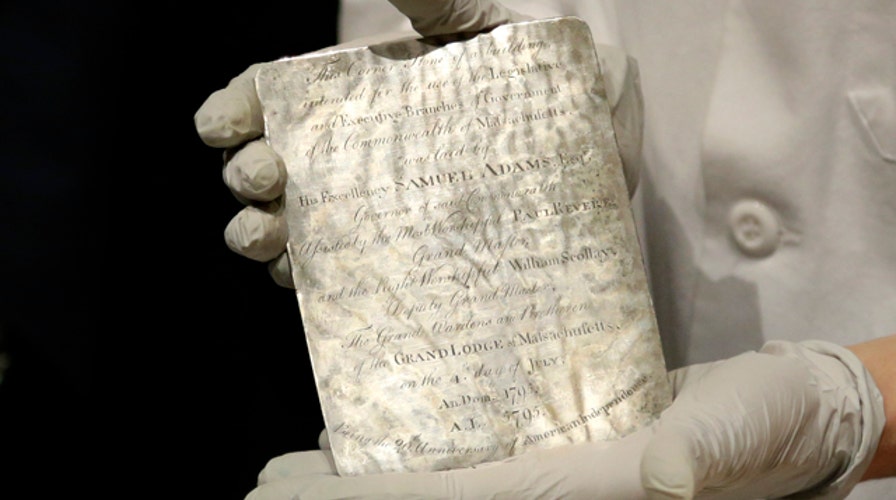 This Corner Stone of a building
intended for the use of the Legislative
and Executive Branches of Government
of the Commonwealth of Massachusetts
was laid by
His Excellency SAMUEL ADAMS, Esqr.
Governor of said Commonwealth
Assisted by the Most Worshipful PAUL REVERE,
Grand Master,
and the Right Worshipful William Scollay,
Deputy Grand Master,
The Grand Wardens and Brethren
of the GRAND LODGE of Massachusetts,
on the 4th day of JULY,
An. Dom. 1795.
A.L. 5795.
Being the 20th Anniversary of American Independence.